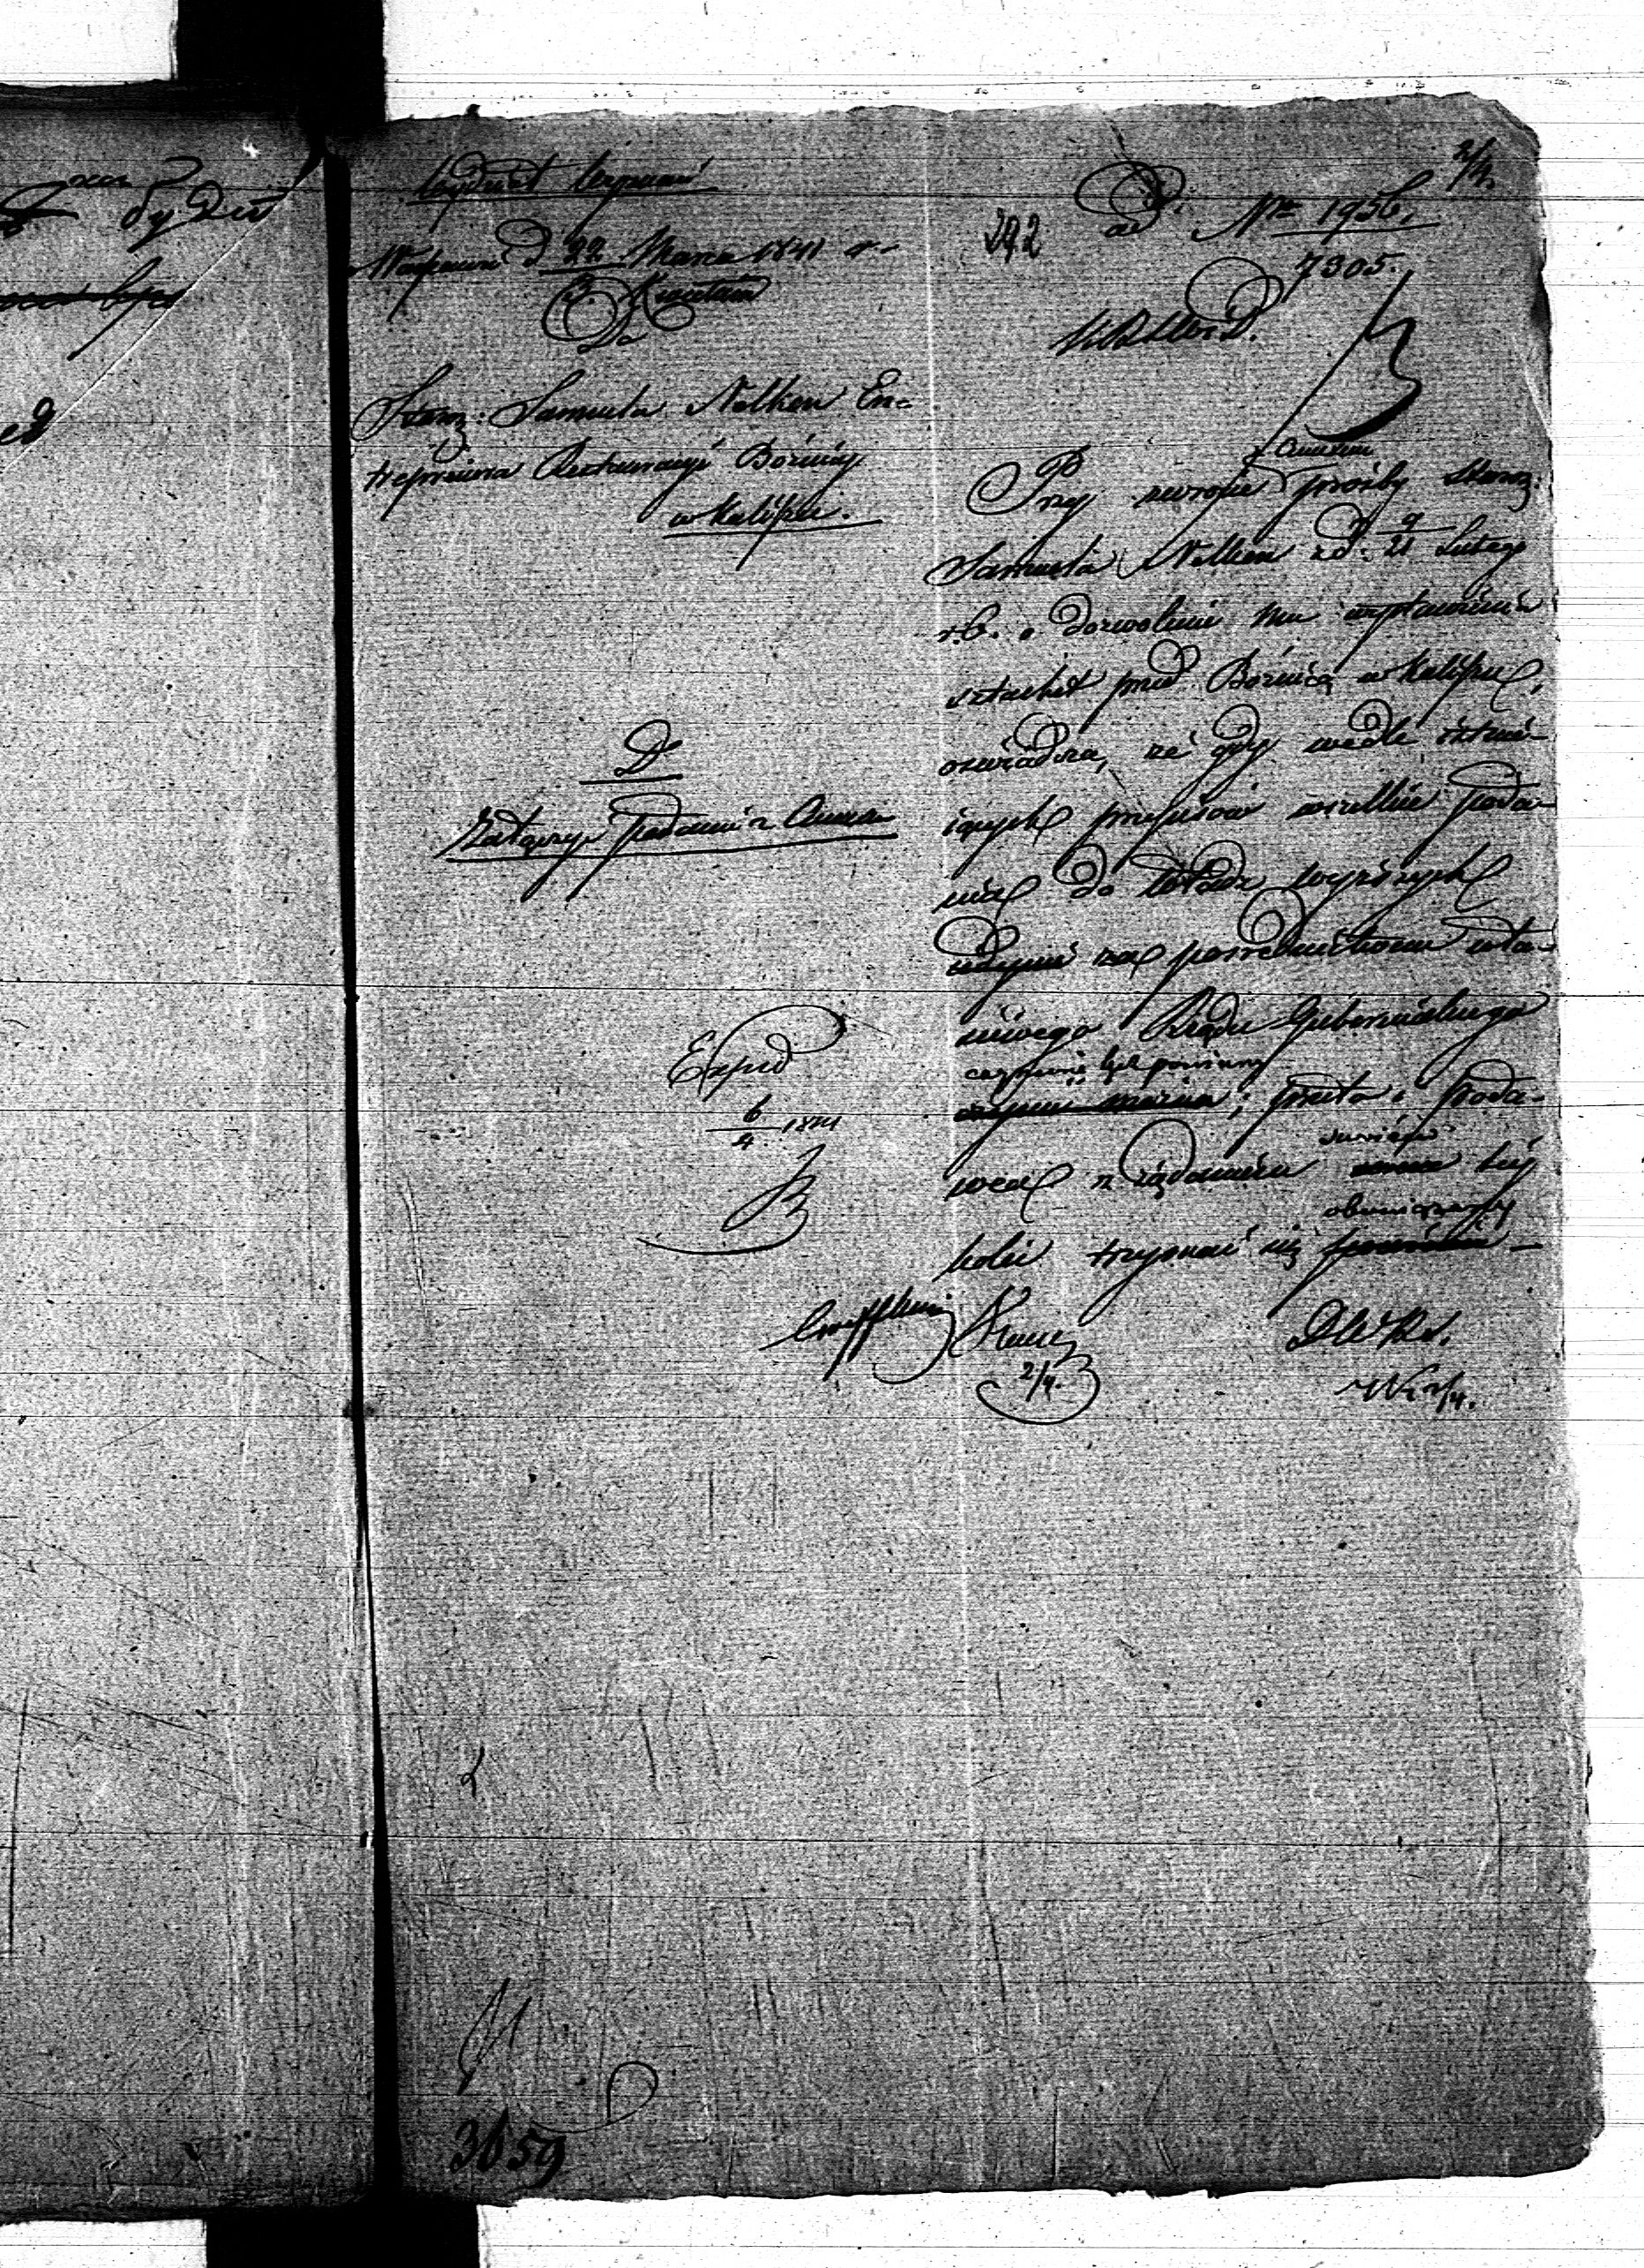 Wydział Wyznań
w Warszawie d 22 Marca 1841 r.
3. Kwietnia
Do
Staroz: Samuela Nelken En-
treprenera Restauracyi Bóżnicy
w Kaliszu.
D
Załączyć podanie z Annexem
Exped
6/4 1841
2/4.
292
ad Nro 1956,
7305.
K.R.S.W.i D.
z Annexem
Przy zwrocie prośby Staroz:
Samuela Nelken z d: 9/21 Lutego
r.b. o dozwolenie mu wystawienia
sztachet przed Bóżnicą w Kaliszu,
oświadcza, że gdy wedle istnie-
jących przepisów wszelkie poda-
nia do Władz wyższych
jedynie za pośrednictwem wła-
ściwego Rządu Gubernialnego
czynione być powinny
czynić można; przeto i poda-
wca z żądaniem swoiem tej
kolei trzymać się
obowiązany
powinien
2/4.
D.W.R.S.
W. 2/4.
3659